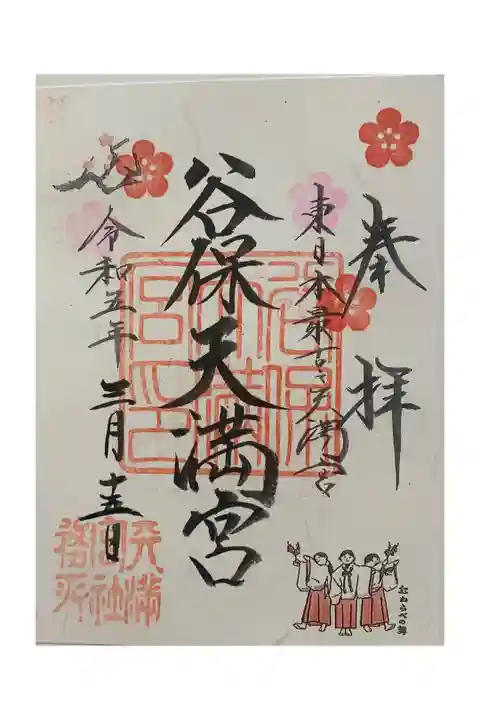 奉拝
東日本最古天満宮
谷保天満宮
令和五年三月十五日
天満宮社務所
紅わらべの舞